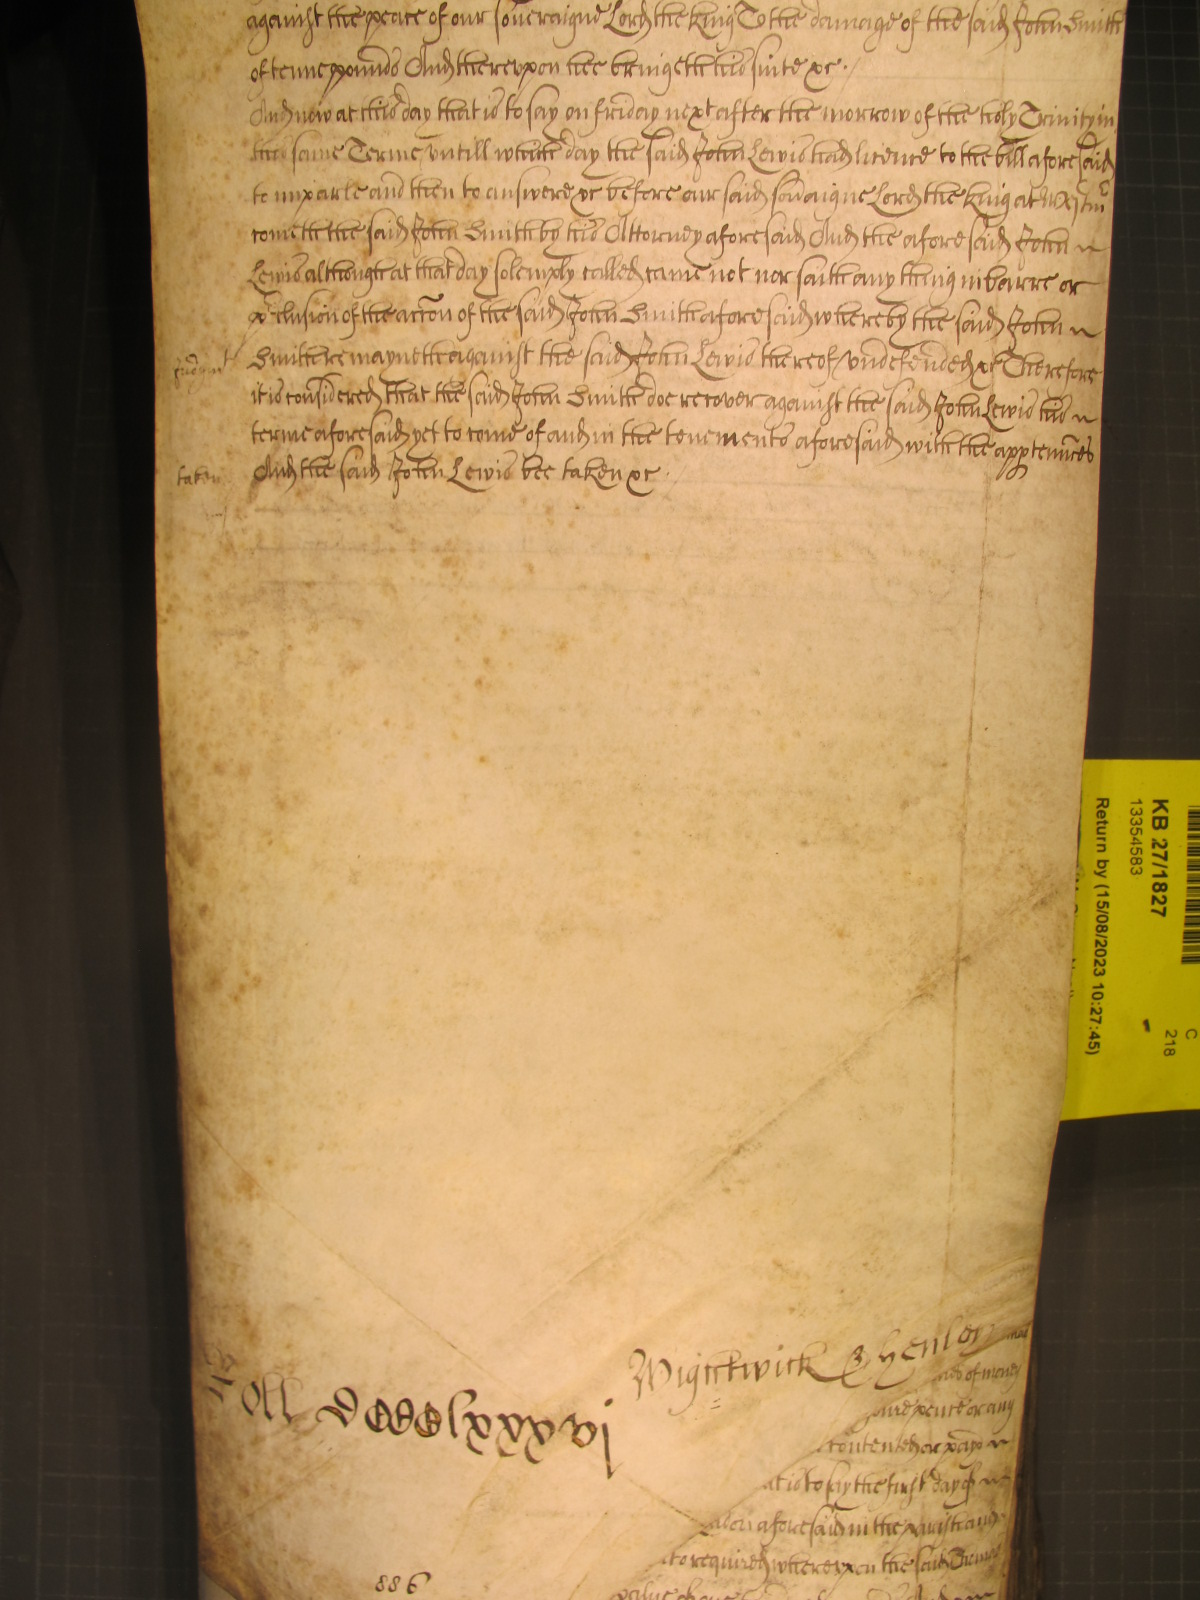 against the peace of our soveraigne Lord the king To the damage of the said John Smith
of tenne pounds And thereupon hee bringeth his suite &c.
And now at this day that is to say on friday next after the morrow of the holy Trinity in
this same Terme untill which day the said John Lewis had licence to the bill aforesaid
to imparle and then to answere &c before our said sovaigne Lord the king at Westm
cometh the said John Smith by his Attorney aforesaid And the aforesaid John
Lewis although at that day solemply called came not nor saith any thing in barre or
pclusion of the accon of the said John Smith aforesaid whereby the said John
Smith remayneth against the said John Lewis thereof undefended &c Therefore
Judgmt
it is considered that the said John Smith doe recover against the said John Lewis his
terme aforesaid yet to come of and in the tenements aforesaid with the apptennces
And the said John Lewis bee taken &c.
taken
Wightwick & Henley
Roll DCCClxxxvi
of money
or any
contented or payd
at is to say the first day of
aforesaid in the parish and
required whereupon the said Thomas
886
KB 27/1827
13354583
Return by (15/08/2023 10:27:45)
C
218